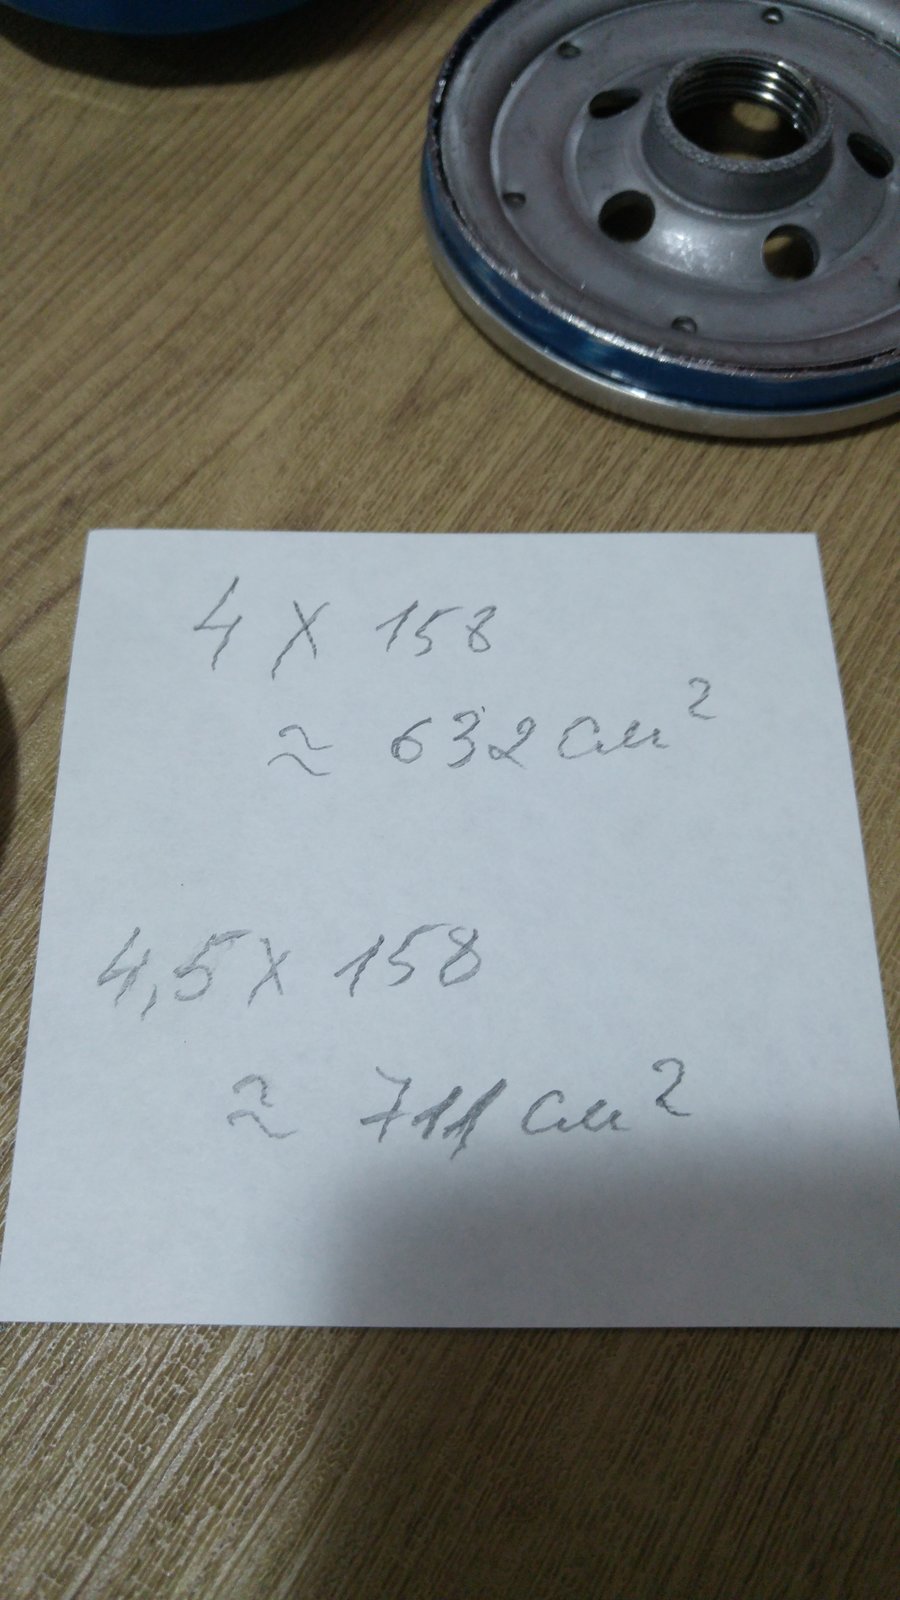 4 x 158
≈ 632 см²
4,5 x 158
≈ 711 см²